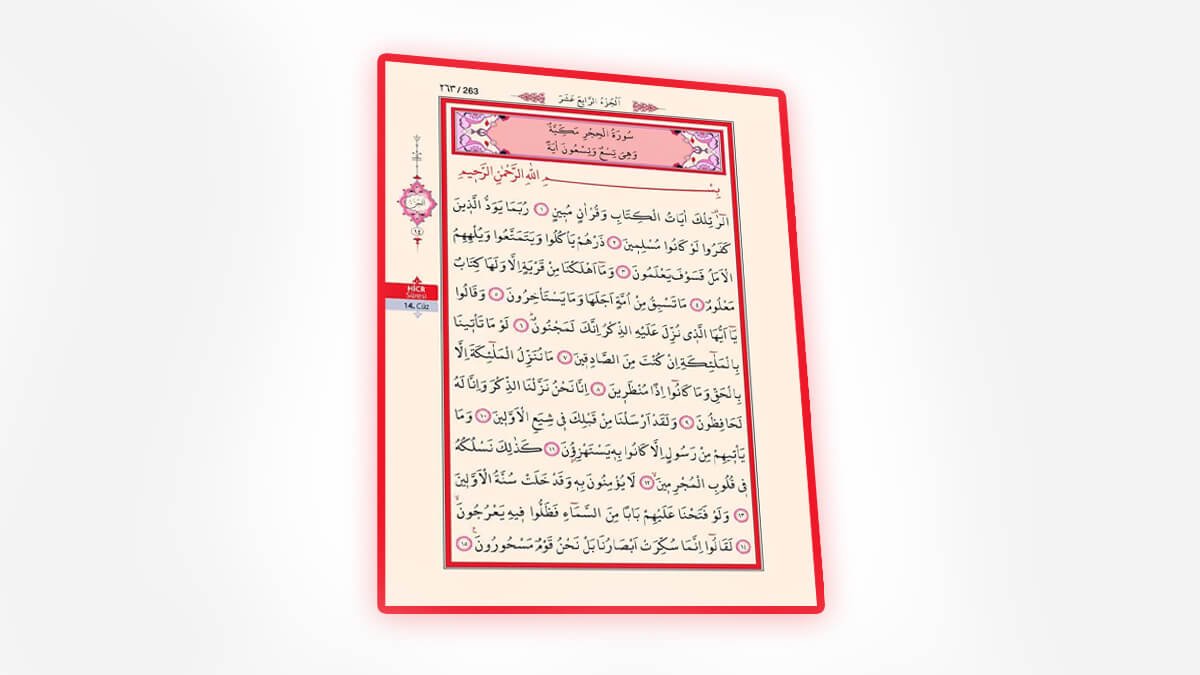 ٢٦٣ / 263
اَلْجُزْءُ الرَّابِعُ عَشَرَ
سُورَةُ الْحِجْرِ مَكِّيَّةٌ
وَهِيَ تِسْعٌ وَتِسْعُونَ اٰيَةً
بِسْمِ اللّٰهِ الرَّحْمٰنِ الرَّحٖيمِ
الٓرٰ۠ تِلْكَ اٰيَاتُ الْكِتَابِ وَقُرْاٰنٍ مُبٖينٍ ﴿١﴾ رُبَمَا يَوَدُّ الَّذٖينَ
كَفَرُوا لَوْ كَانُوا مُسْلِمٖينَ ﴿٢﴾ ذَرْهُمْ يَأْكُلُوا وَيَتَمَتَّعُوا وَيُلْهِهِمُ
الْاَمَلُ فَسَوْفَ يَعْلَمُونَ ﴿٣﴾ وَمَٓا اَهْلَكْنَا مِنْ قَرْيَةٍ اِلَّا وَلَهَا كِتَابٌ
مَعْلُومٌ ﴿٤﴾ مَا تَسْبِقُ مِنْ اُمَّةٍ اَجَلَهَا وَمَا يَسْتَأْخِرُونَ ﴿٥﴾ وَقَالُوا
يَٓا اَيُّهَا الَّذٖي نُزِّلَ عَلَيْهِ الذِّكْرُ اِنَّكَ لَمَجْنُونٌؕ ﴿٦﴾ لَوْ مَا تَأْتٖينَا
بِالْمَلٰٓئِكَةِ اِنْ كُنْتَ مِنَ الصَّادِقٖينَ ﴿٧﴾ مَا نُنَزِّلُ الْمَلٰٓئِكَةَ اِلَّا
بِالْحَقِّ وَمَا كَانُٓوا اِذًا مُنْظَرٖينَ ﴿٨﴾ اِنَّا نَحْنُ نَزَّلْنَا الذِّكْرَ وَاِنَّا لَهُ
لَحَافِظُونَ ﴿٩﴾ وَلَقَدْ اَرْسَلْنَا مِنْ قَبْلِكَ فٖي شِيَعِ الْاَوَّلٖينَ ﴿١٠﴾ وَمَا
يَأْتٖيهِمْ مِنْ رَسُولٍ اِلَّا كَانُوا بِهٖ يَسْتَهْزِؤُ۫نَ ﴿١١﴾ كَذٰلِكَ نَسْلُكُهُ
فٖي قُلُوبِ الْمُجْرِمٖينَۙ ﴿١٢﴾ لَا يُؤْمِنُونَ بِهٖ وَقَدْ خَلَتْ سُنَّةُ الْاَوَّلٖينَ
﴿١٣﴾ وَلَوْ فَتَحْنَا عَلَيْهِمْ بَابًا مِنَ السَّمَٓاءِ فَظَلُّوا فٖيهِ يَعْرُجُونَۙ
﴿١٤﴾ لَقَالُٓوا اِنَّمَا سُكِّرَتْ اَبْصَارُنَا بَلْ نَحْنُ قَوْمٌ مَسْحُورُونَࣖ ﴿١٥﴾
اَلْجُزْءُ
١٤
HİCR
Sûresi
14. Cüz